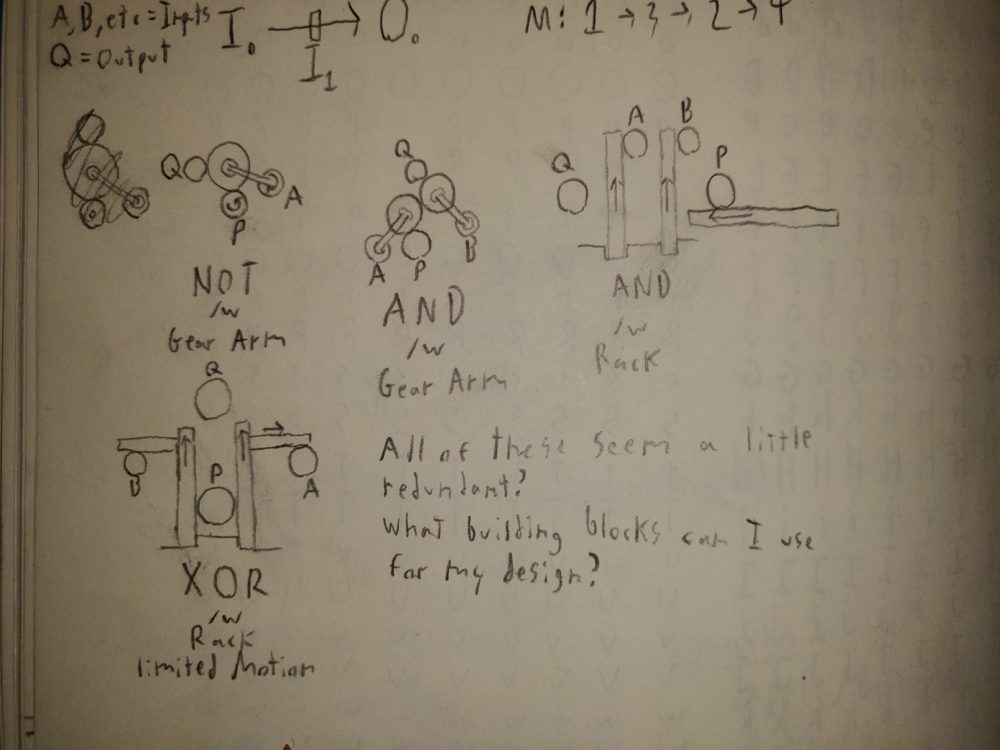 A, B, etc = Inputs
Q = Output
I₀ O₀
I₁
M: 1 → 3 → 2 → 4
Q A
P
NOT
/w
Gear Arm
Q
A P B
AND
/w
Gear Arm
A B
Q P
AND
/w
Rack
Q
B P A
XOR
/w
Rack
limited Motion
All of these seem a little
redundant?
What building blocks can I use
for my design?